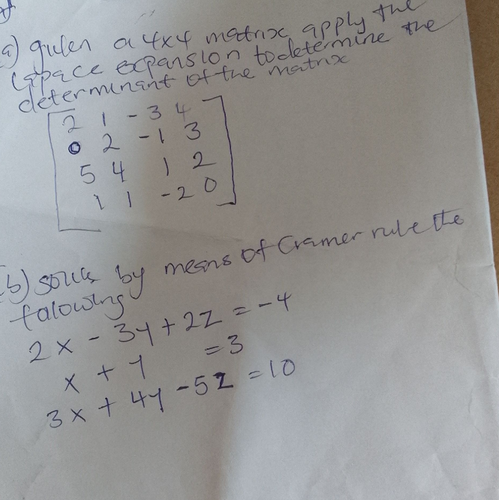 (a) given a 4x4 matrix apply the
Lapace expansion to determine the
determinant of the matrix
2 1 -3 4
0 2 -1 3
5 4 1 2
1 1 -2 0
(b) solve by means of Cramer rule the
following
2x - 3y + 2z = -4
x + y = 3
3x + 4y - 5z = 10